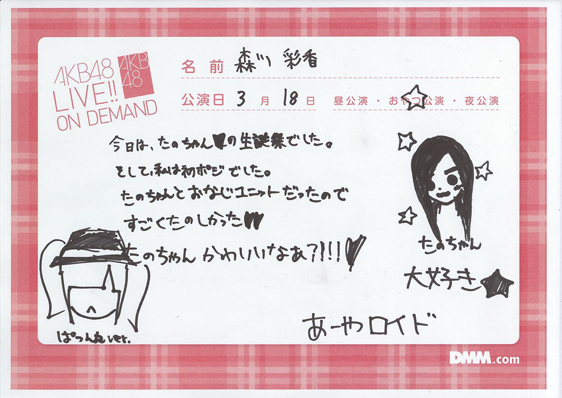 AKB48
LIVE!!
ON DEMAND
AKB
48
名前 森川 彩香
公演日 3月18日 昼公演・おやつ公演・夜公演
今日は、たのちゃん♥の生誕祭でした。
そして、私は初ポジでした。
たのちゃんとおなじユニットだったので
すごくたのしかった♥♥
たのちゃん かわいいなぁ?!!!♥
たのちゃん
大好き★
ぱっつん丸ver.
あーやロイド
DMM.com